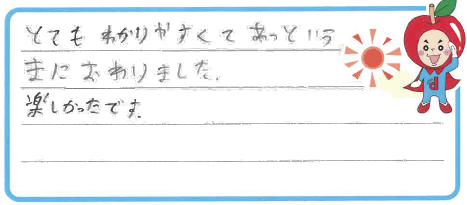 とても わかりやすくて あっという
まに おわりました.
楽しかったです.